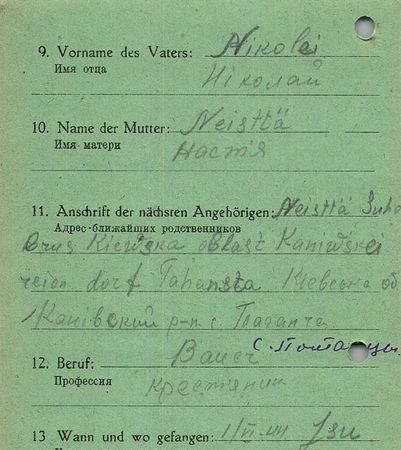 9. Vorname des Vaters: Nikolei
Имя отца
Ніколай
10. Name der Mutter: Neisttä
Имя матери
Настя
11. Anschrift der nächsten Angehörigen: Neisttä Suho
Адрес ближайших родственников
Kiewska oblast Kaniwskei
reion dorf Tahansta Киевська об
Канівский р-н с.
с. Потапцы
12. Beruf: Bauer
Профессия Крестянин
13 Wann und wo gefangen: